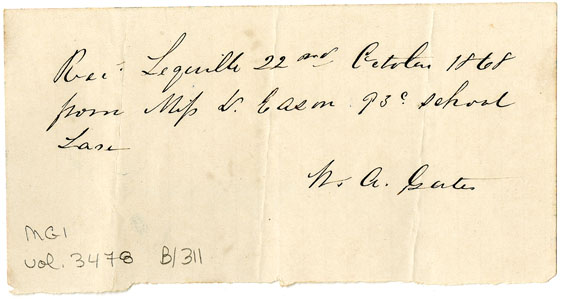 Rec'd Lequille 22nd October 1868
from Miss D. Eason 93c school
Tax
W. A. Gates
MG1
vol. 3478 B/311